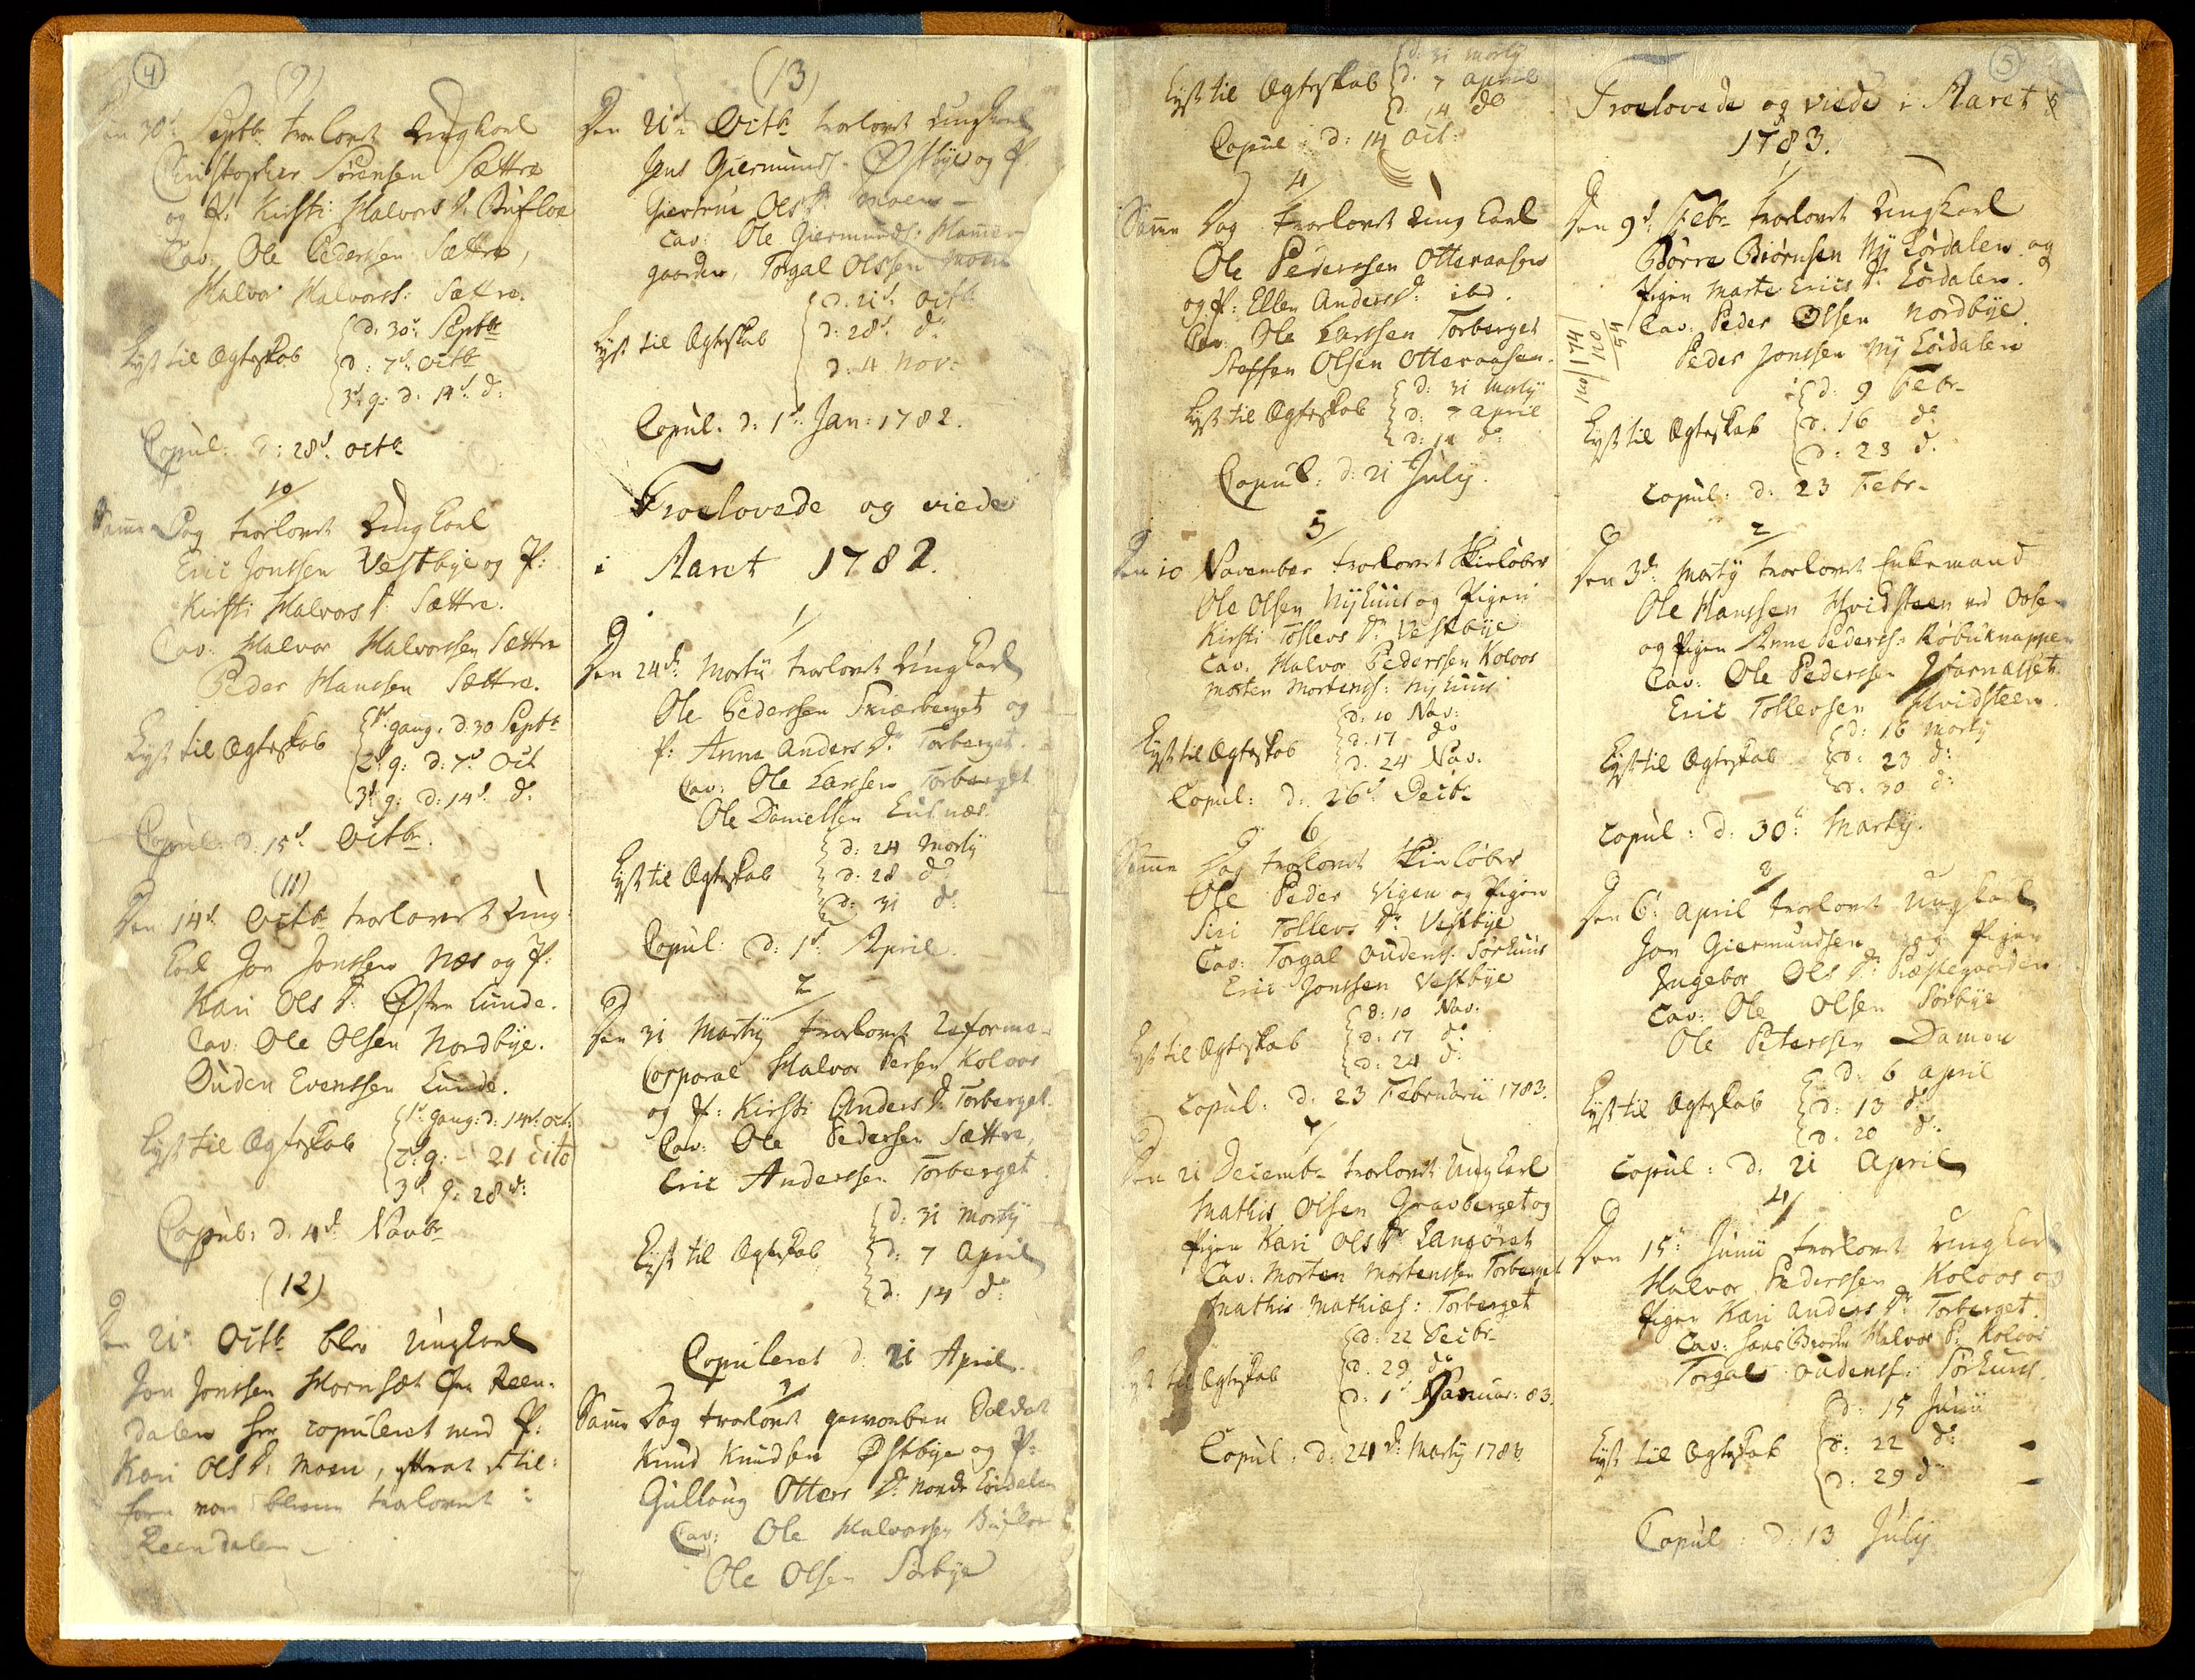 4
(9)
Den 30d. Septbr. troelovet Ungkarl
Christopher Sørensen Sættre
og P. Kirsti Halvors Dr. Bufloe
Cav: Ole Pederssen Sættre,
Halvor Halvorss: Sættre.
Lyst til Ægteskab
d: 30d. Septbr
d: 7d. Octbr
3d. g: d. 14d. do:
Copul: d: 28d. Octbr
10/
Samme Dag troelovet Ungkarl
Eric Jonssen Vestbye og P:
Kirsti Halvors Dr. Sættre.
Cav: Halvor Halvorssen Sættre
Peder Hanssen Sættre.
Lyst til Ægteskab
1d. gang. d. 30 Septbr
2d. g: d: 7d. Oct
3d. g: d: 14d. do:
Copul: d. 15d. Octbr.
(11)
Den 14d. Octbr troelovet Ung-
karl Jon Jonssen Næs og P:
Kari Ols Dr. Østre Lunde.
Cav: Ole Olsen Nordbye.
Ouden Evenssen Lunde.
Lyst til Ægteskab
1d. gang: d: 14d. Oct:
2. g: - 21 dito
3d. g: 28 do:
Copul: d. 4d. Novbr
(12)
Den 21d. Octbr blev Ungkarl
Jon Jonssen Hornset fra Reen-
dalen her copuleret med P:
Kari Ols Dr. Moen, efterat til-
forn var bleven troelovet i
Reendalen -
(13)
Den 21d. Octbr troelovet Ungkarl
Jens Giermunds. Østbye og P.
Giertrui Ols Dr. Moen -
Cav: Ole Giermunds: Hammer-
gaarden, Torgal Olssen Moen
Lyst til Ægteskab
d. 21d. Octbr
d: 28d. do
d. 4 Nov:
Copul. d: 1d. Jan: 1782.
Troelovede og viede
i Aaret 1782.
1/
Den 24d. Martii troelovet Ungkarl
Ole Pederssen Skiærberget og
P: Anna Anders Dr. Torberget.
Cav: Ole Larssen Torberget
Ole Daniellsen Lutnæs
Lyst til Ægteskab
d: 24 Martij
d: 28 do
d: 31 do
Copul: d: 1d. April.
2/
Den 31 Martij troelovet Reforme-
Corporal Halvor Persen Koloos
og P: Kirsti Anders Dr. Torberget.
Cav: Ole Pedersen Sættre,
Eric Anderssen Torberget
Lyst til Ægteskab
d: 31 Martij
d: 7 April
d: 14 do:
Copuleret d. 21 April.
3/
Samme Dag troelovet gevorben Soldat
Knud Knudsen Østbye og P:
Gulloug Otters Dr. Nordre Lørdalen
Cav: Ole Halvorssen Bufloe
Ole Olsen Sørbye
Lyst til Ægteskab
d: 31 Martij
d. 7 April
d. 14 do
Copul: d: 14 Oct:
4/
Samme Dag troelovet Ung Carl
Ole Pederssen Otteraasen
og P: Ellen Anders Dr: ibd.
Cav: Ole Larssen Torberget
Steffen Olsen Otteraasen.
Lyst til Ægteskab
d: 31 Martij
d: 7 April
d: 14 do:
Copul: d: 21 July.
5/
Den 10 November troelovet Skieløber
Ole Olsen Nyhuus og Pigen
Kirsti Tollevs Dr. Vestbye
Cav: Halvor Pederssen Koloos
Morten Mortenss: Nyhuus
Lyst til Ægteskab
d: 10 Nov:
d. 17 do
d. 24 Nov.
Copul: d: 26d. Decbr.
6
Samme Dag troelovet Skieløber
Ole Peder Vigen og Pigen
Siri Tollevs Dr. Vestbye
Cav: Torgal Oudens: Sørhuus
Eric Jonssen Vestbye
Lyst til Ægteskab
d: 10 Nov:
d: 17 do
d: 24 do:
Copul: d. 23 Februarii 1783.
7/
Den 21 Decembr. troelovet Ungkarl
Mathis Olsen Gravberget og
Pigen Kari Ols Dr. Langøret
Cav: Morten Mortenssen Torberget
Mathis Mathiæs: Torberget
Lyst til Ægteskab
d: 22 Decbr.
d. 29 do
d: 1d. Januar: 83.
Copul: d. 24d. Martij 178
5
Troelovede og viede i Aaret
1783.
1/
Den 9d. Febr. troelovet Ungkarl
Børre Biørnsen Ny Lørdalen og
Pigen Marte Erics Dr. Lørdalen.
Cav: Peder Olsen Nordbye
Peder Jonssen Ny Lørdalen
Lyst til Ægteskab
d: 9 Febr.
d. 16 do
d: 23 d.
Copul: d: 23 Febr.
2/
Den 3d. Martij troelovet Enkemand
Ole Hanssen Hvidsteen ved Osen
og Pigen Anne Pederss: Røbuknappen
Cav: Ole Pederssen
Eric Tollevsen Hvidsteen.
Lyst til Ægteskab
d: 16 Martij
d: 23 d:
d: 30 d:
Copul: d: 30d. Martij.
3/
Den 6d. April troelovet Ungkarl
Jon Giermundsen og Pigen
Ingebor Ols Dr. Præstegaarden
Cav: Ole Olsen Sørbye
Ole Peterssen Damon
Lyst til Ægteskab
d: 6 April
d: 13 do
d: 20 d.
Copul: d. 21 April
4/
Den 15d. Junii troelovet Ungkarl
Halvor Pederssen Koloos og
Pigen Kari Anders Dr. Torberget.
Cav: Halvor P: Koloos
Torgal Oudens: Sørhuus.
Lyst til Ægteskab
d: 15 Junii
d: 22 do:
d: 29 d
Copul: d: 13 July